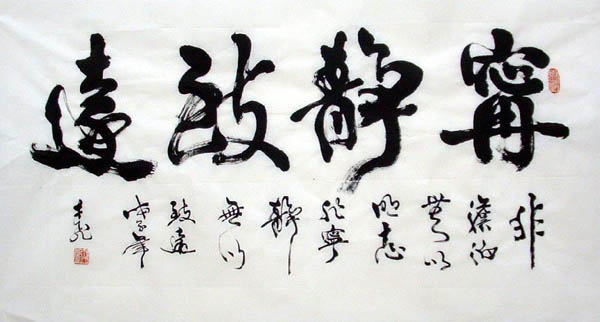 寧靜致遠
非
澹泊
無以
明志
非寧
靜
無以
致遠
戊子年